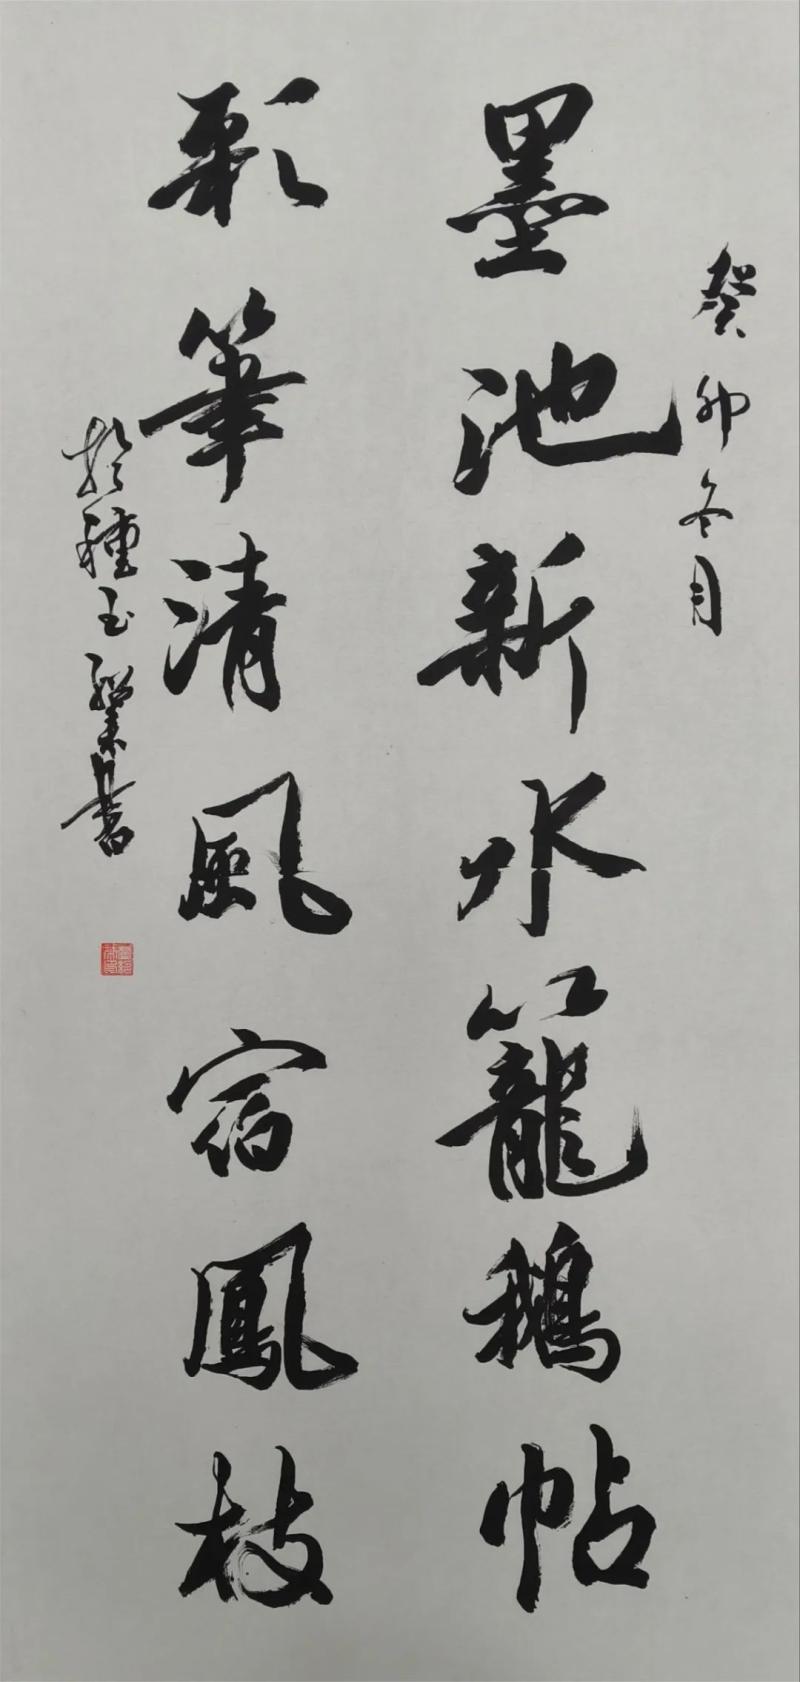 癸卯冬月
墨池新水籠鵝帖
彩筆清風宿鳳枝
於種玉
書